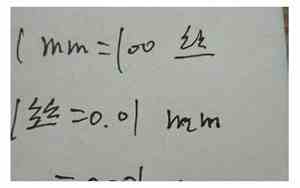 1 mm=100 丝
1丝=0.01 mm